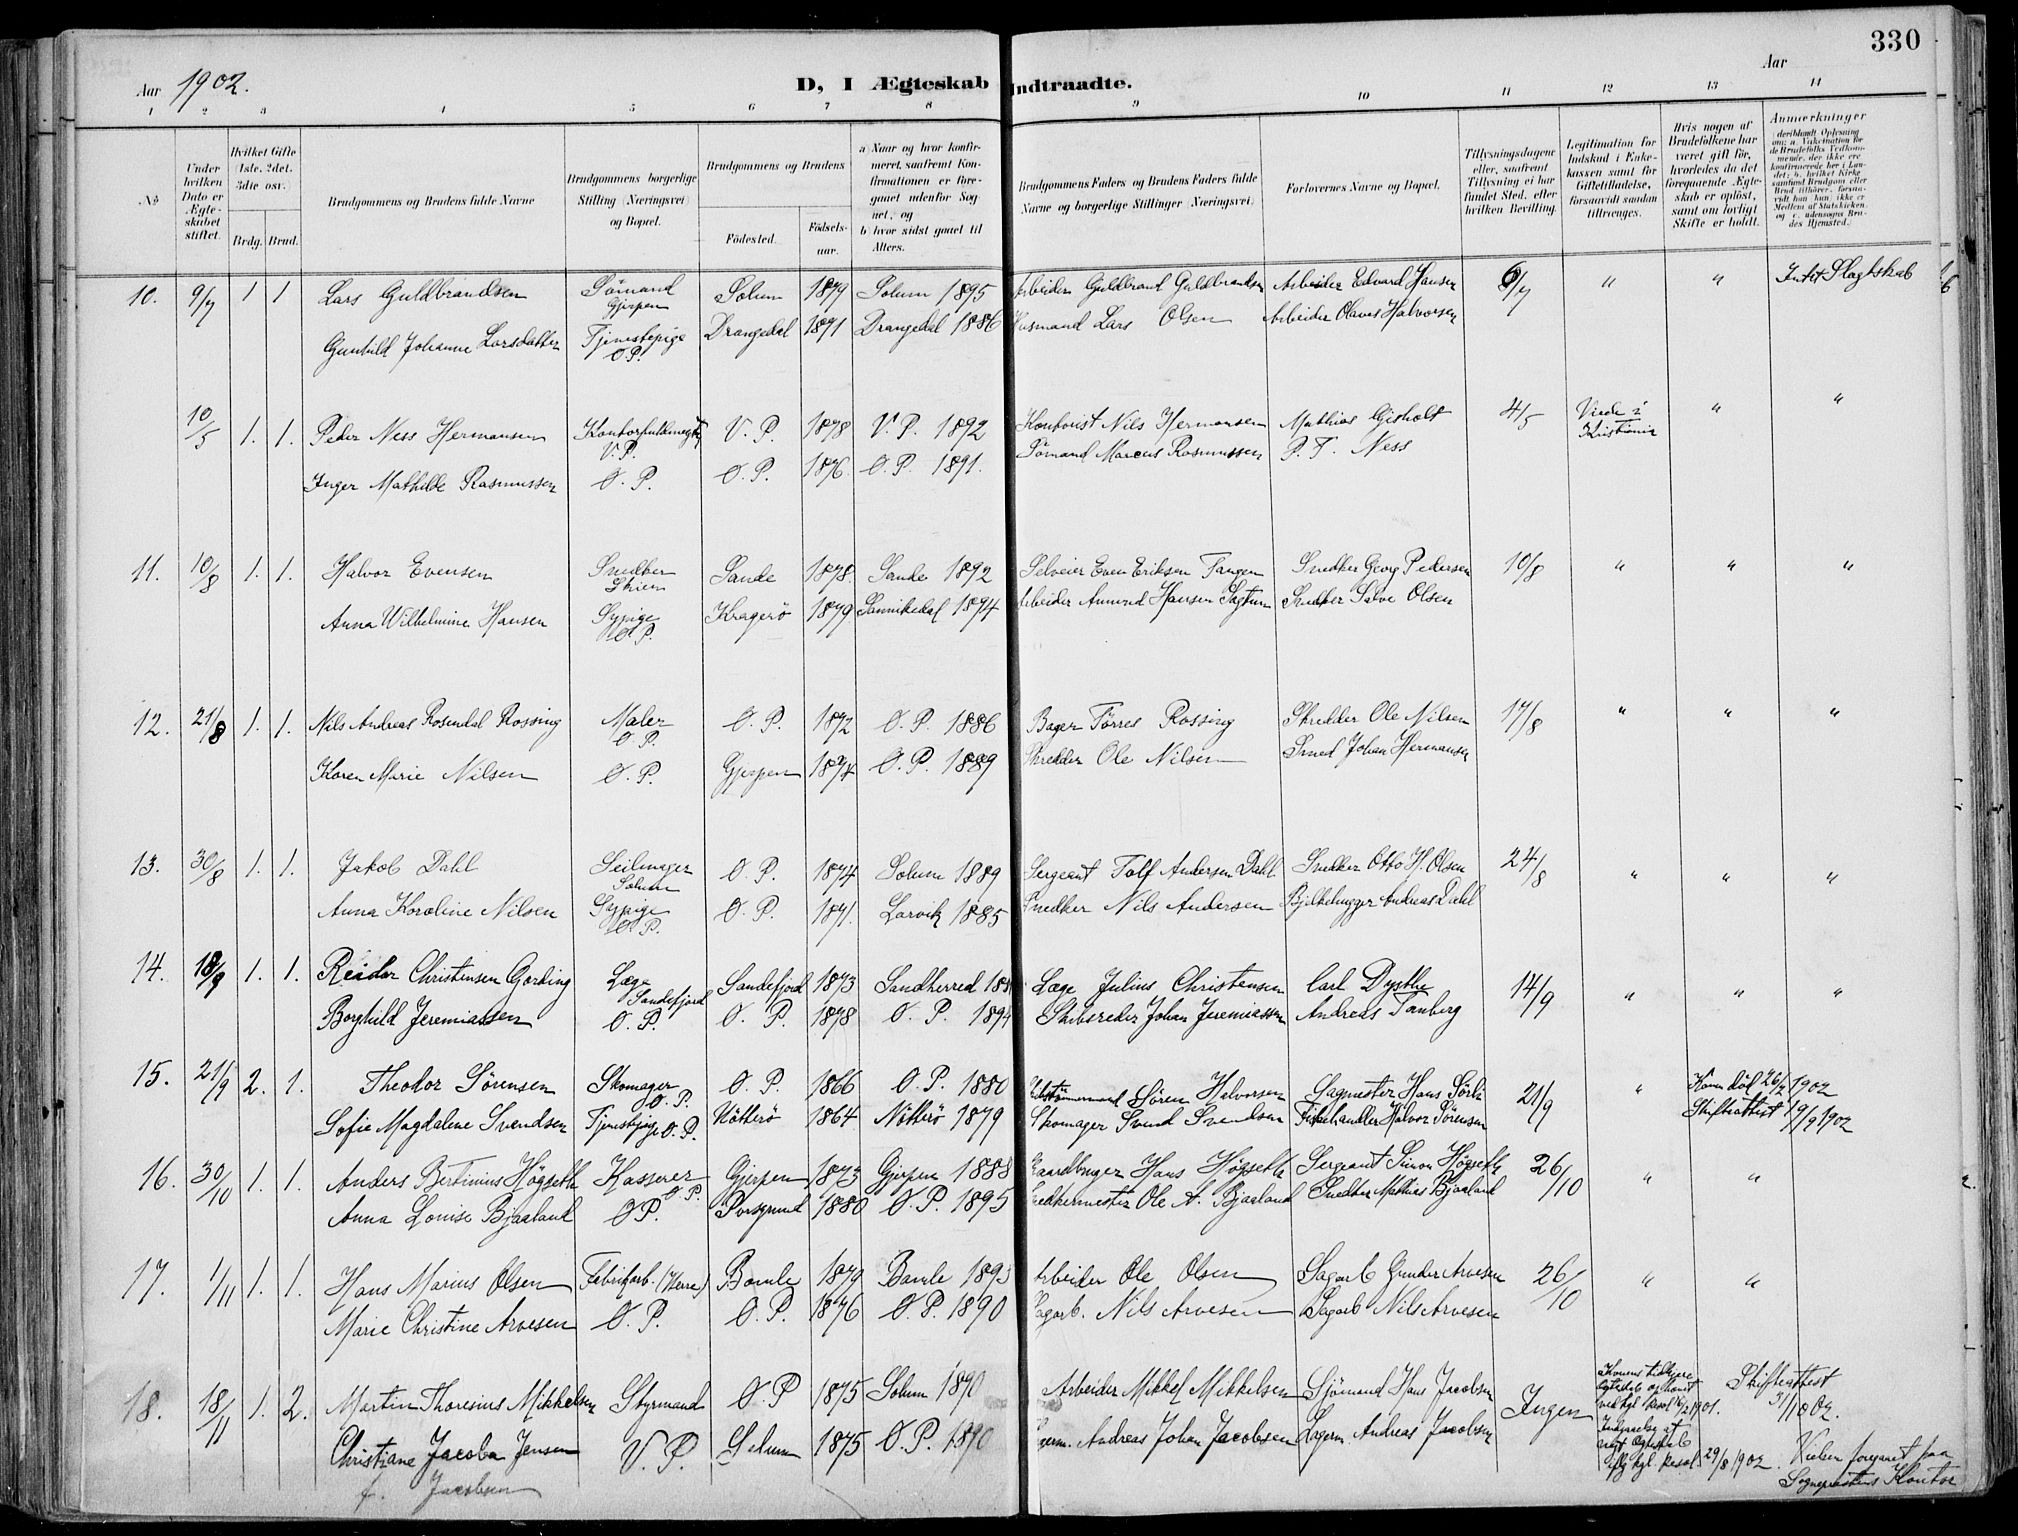 330
Aar 1902.
D, I Ægteskab Indtraadte.
Aar
1 2 3 4 5 6 7 8 9 10 11 12 13 14
No
Under hvilken Dato er Ægteskabet stiftet.
Hvilket Gifte (1ste, 2det, 3die osv.)
Brdg. Brud.
Brudgommens og Brudens fulde Navne
Brudgommens borgerlige Stilling (Næringsvei) og Bopæl.
Brudgommens og Brudens
Födested.
Födselsaar.
a) Naar og hvor konfirmeret, saafremt Konfirmationen er foregaaet udenfor Sognet, og b) hvor sidst gaaet til Alters.
Brudgommens Faders og Brudens Faders fulde Navne og borgerlige Stillinger (Næringsvei)
Forlovernes Navne og Bopæl.
Tillysningsdagene eller, saafremt Tillysning ei har fundet Sted, efter hvilken Bevilling.
Legitimation for Indskud i Enkekassen samt for Giftetilladelse, forsaavidt saadan tiltrænges.
Hvis nogen af Brudefolkene har været gift før, hvorledes da det foregaaende Ægteskab er opløst, samt om lovligt Skifte er holdt.
Anmærkninger
10. 9/7 1 1 Lars Guldbrandsen Sømand Gjerpen Solum 1879 Solum 1895 Arbeider Guldbrand Guldbrandsen Arbeider Edvard Hansen 6/7 " " Intet Slagtskab
Gunhild Johanne Larsdatter Tjenestepige Ø.P. Drangedal 1871 Drangedal 1886 Husmand Lars Olsen Arbeider Olaves Halvorsen
10/5 1. 1. Peder Ness Hermansen V.P. V.P. 1878 V.P. 1892 Kontorist Nils Hermansen Mathias Gjisholt 4/5 Viede i Kristiania " "
Inger Mathilde Rasmussen Ø.P. Ø.P. 1876 Ø.P. 1891. Sømand Marcus Rasmussen P. T. Ness
11. 10/8 1. 1. Halvor Evensen Snedker Skien Sande 1878. Sande 1892 Selveier Even Eriksen Tangen Snedker Georg Pedersen 10/8 " " "
Anna Wilhelmine Hansen Sypige Ø.P. Kragerö 1879 Sannikedal 1894 Arbeider Amund Hansen Snedker Salve Olsen
12. 21/8 1. 1. Nils Andreas Rosendal Rossing Maler Ø.P. Ø.P. 1872 Ø.P. 1886 Bager Törres Rossing Skredder Ole Nilsen 17/8 " " "
Karen Marie Nilsen Ø.P. Gjerpen 1874 Ø.P. 1889 Skredder Ole Nilsen Smed Johan Hermansen
13. 30/8 1. 1. Jakob Dahl Seilmager Solum Ø.P. 1874 Solum 1889 Sergeant Tolf Andersen Dahl Snedker Otto H. Olsen 24/8 " " "
Anna Karoline Nilsen Sypige Ø.P. Ø.P. 1871. Larvik 1885 Snedker Nils Andersen Bjelkehugger Andreas Dahl
14. 18/9 1. 1. Reidar Christensen Gording Læge Sandefjord Sandefjord 1873 Sandherred Læge Julius Christensen Carl Dysthe 14/9 " " "
Borghild Jeremiassen Ø.P. Ø.P. 1878 Ø.P. 1894 Skibsreder Johan Jeremiassen Andreas Tanberg
15. 21/9 2. 1. Theodor Sörensen Skomager Ø.P. Ø.P. 1866 Ø.P. 1880 Sören Halvorsen Sagmester Hans Sörli 21/9 " Konen död 26/2 1902
Sofie Magdalene Svendsen Tjenestpige Ø.P. Nötterö 1864 Nötterö 1879 Skomager Svend Svendsen Fiskehandler Halvor Sörensen Skifteattest 19/9 1902
16. 30/10 1. 1. Anders Bertinius Högseth Kasserer Ø.P. Gjerpen 1873 Gjerpen 1888 Gaardbruger Hans Högseth Sergeant Simon Högseth 26/10 " "
Anna Louise Bjaaland ØP. Porsgrund 1880 Ø.P. 1895 Snedkermester Ole A. Bjaaland Snedker Mathias Bjaaland
17. 1/11 1. 1. Hans Marius Olsen Fabrikarb. (Herre) Bamle 1879 Bamle 1893 Arbeider Ole Olsen Sagarb Gunder Arvesen 26/10 " "
Marie Christine Arvesen Ø.P. Ø.P. 1876 Ø.P. 1890 Sagarb. Nils Arvesen Sagarb Nils Arvesen
18. 18/11 1. 2. Martin Thoresius Mikkelsen Styrmand Ø.P 1875 Solum 1890 Arbeider Mikkel Mikkelsen Sjömand Hans Jacobsen Ingen Konens tidligere Skifteattest 3/11002.
Christiane Jacoba Jensen V.P. Solum 1875 Ø.P. 1890 Andreas Johan Jacobsen Lagerm. Andreas Jacobsen kgl. Resol. 29/8 1902. Vielsen foregaaet paa
f. Jacobsen Sognepræstens Kontor